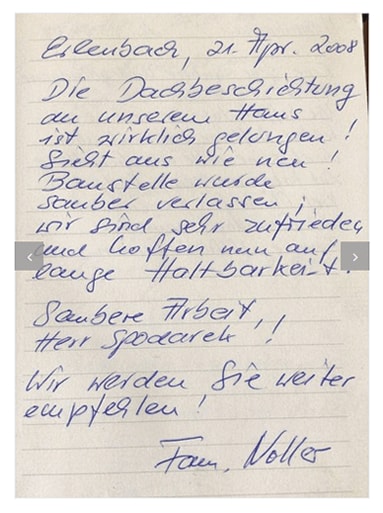 Erlenbach, 21. Apr. 2008
Die Dachbeschichtung
an unserem Haus
ist wirklich gelungen!
Sieht aus wie neu!
Baustelle wurde
sauber verlassen,
wir sind sehr zufrieden
und hoffen nun auf
lange Haltbarkeit.
Saubere Arbeit,
Herr Spodarek!!
Wir werden Sie weiter
empfehlen!
Fam. Noller